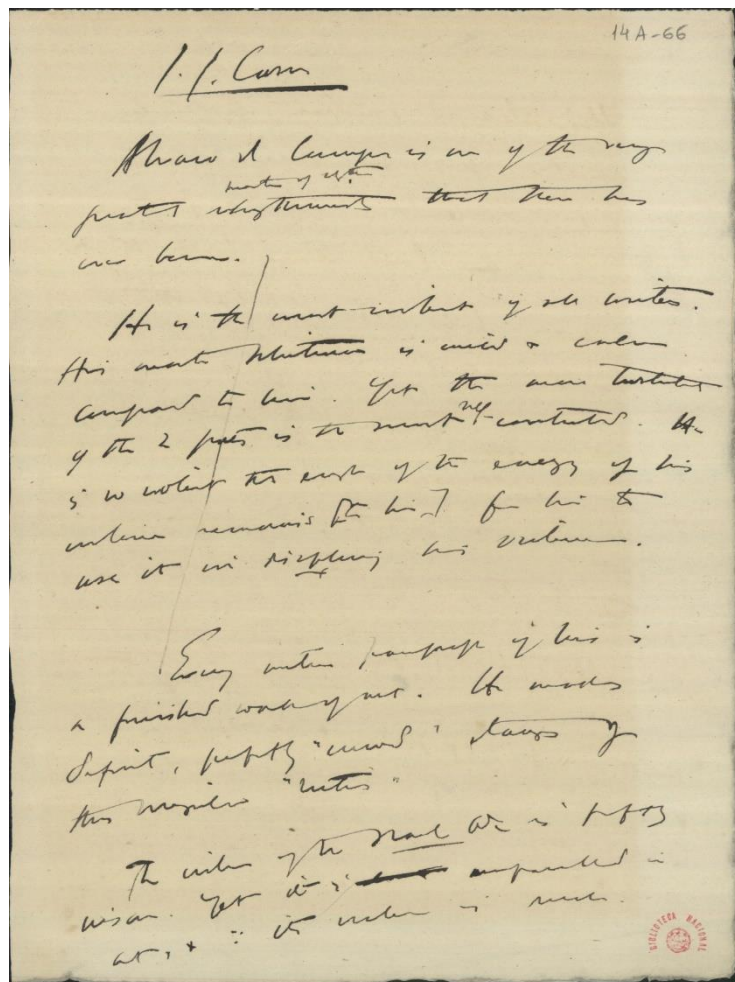 14A-66
I. I. Crosse
Alvaro de Campos is one of the very
masters of rhythm
greatest rhythmists that there has
ever been.
He is the most violent of all writers.
His master Whitman is mild & calm
compared to him. Yet the more turbulent
of the 2 poets is the most self-controlled. He
is so violent that enough of the energy of his
violence remains [to him] for him to
use it in disciplining his violence.
Every written paragraph of his is
a finished work of art. He makes
definite, perfectly "curved" stanzas of
these irregular
The violence of the Naval Ode is perfectly
insane. Yet it is unparalleled in
art, & ∵ its violence is such.
BIBLIOTECA NACIONAL